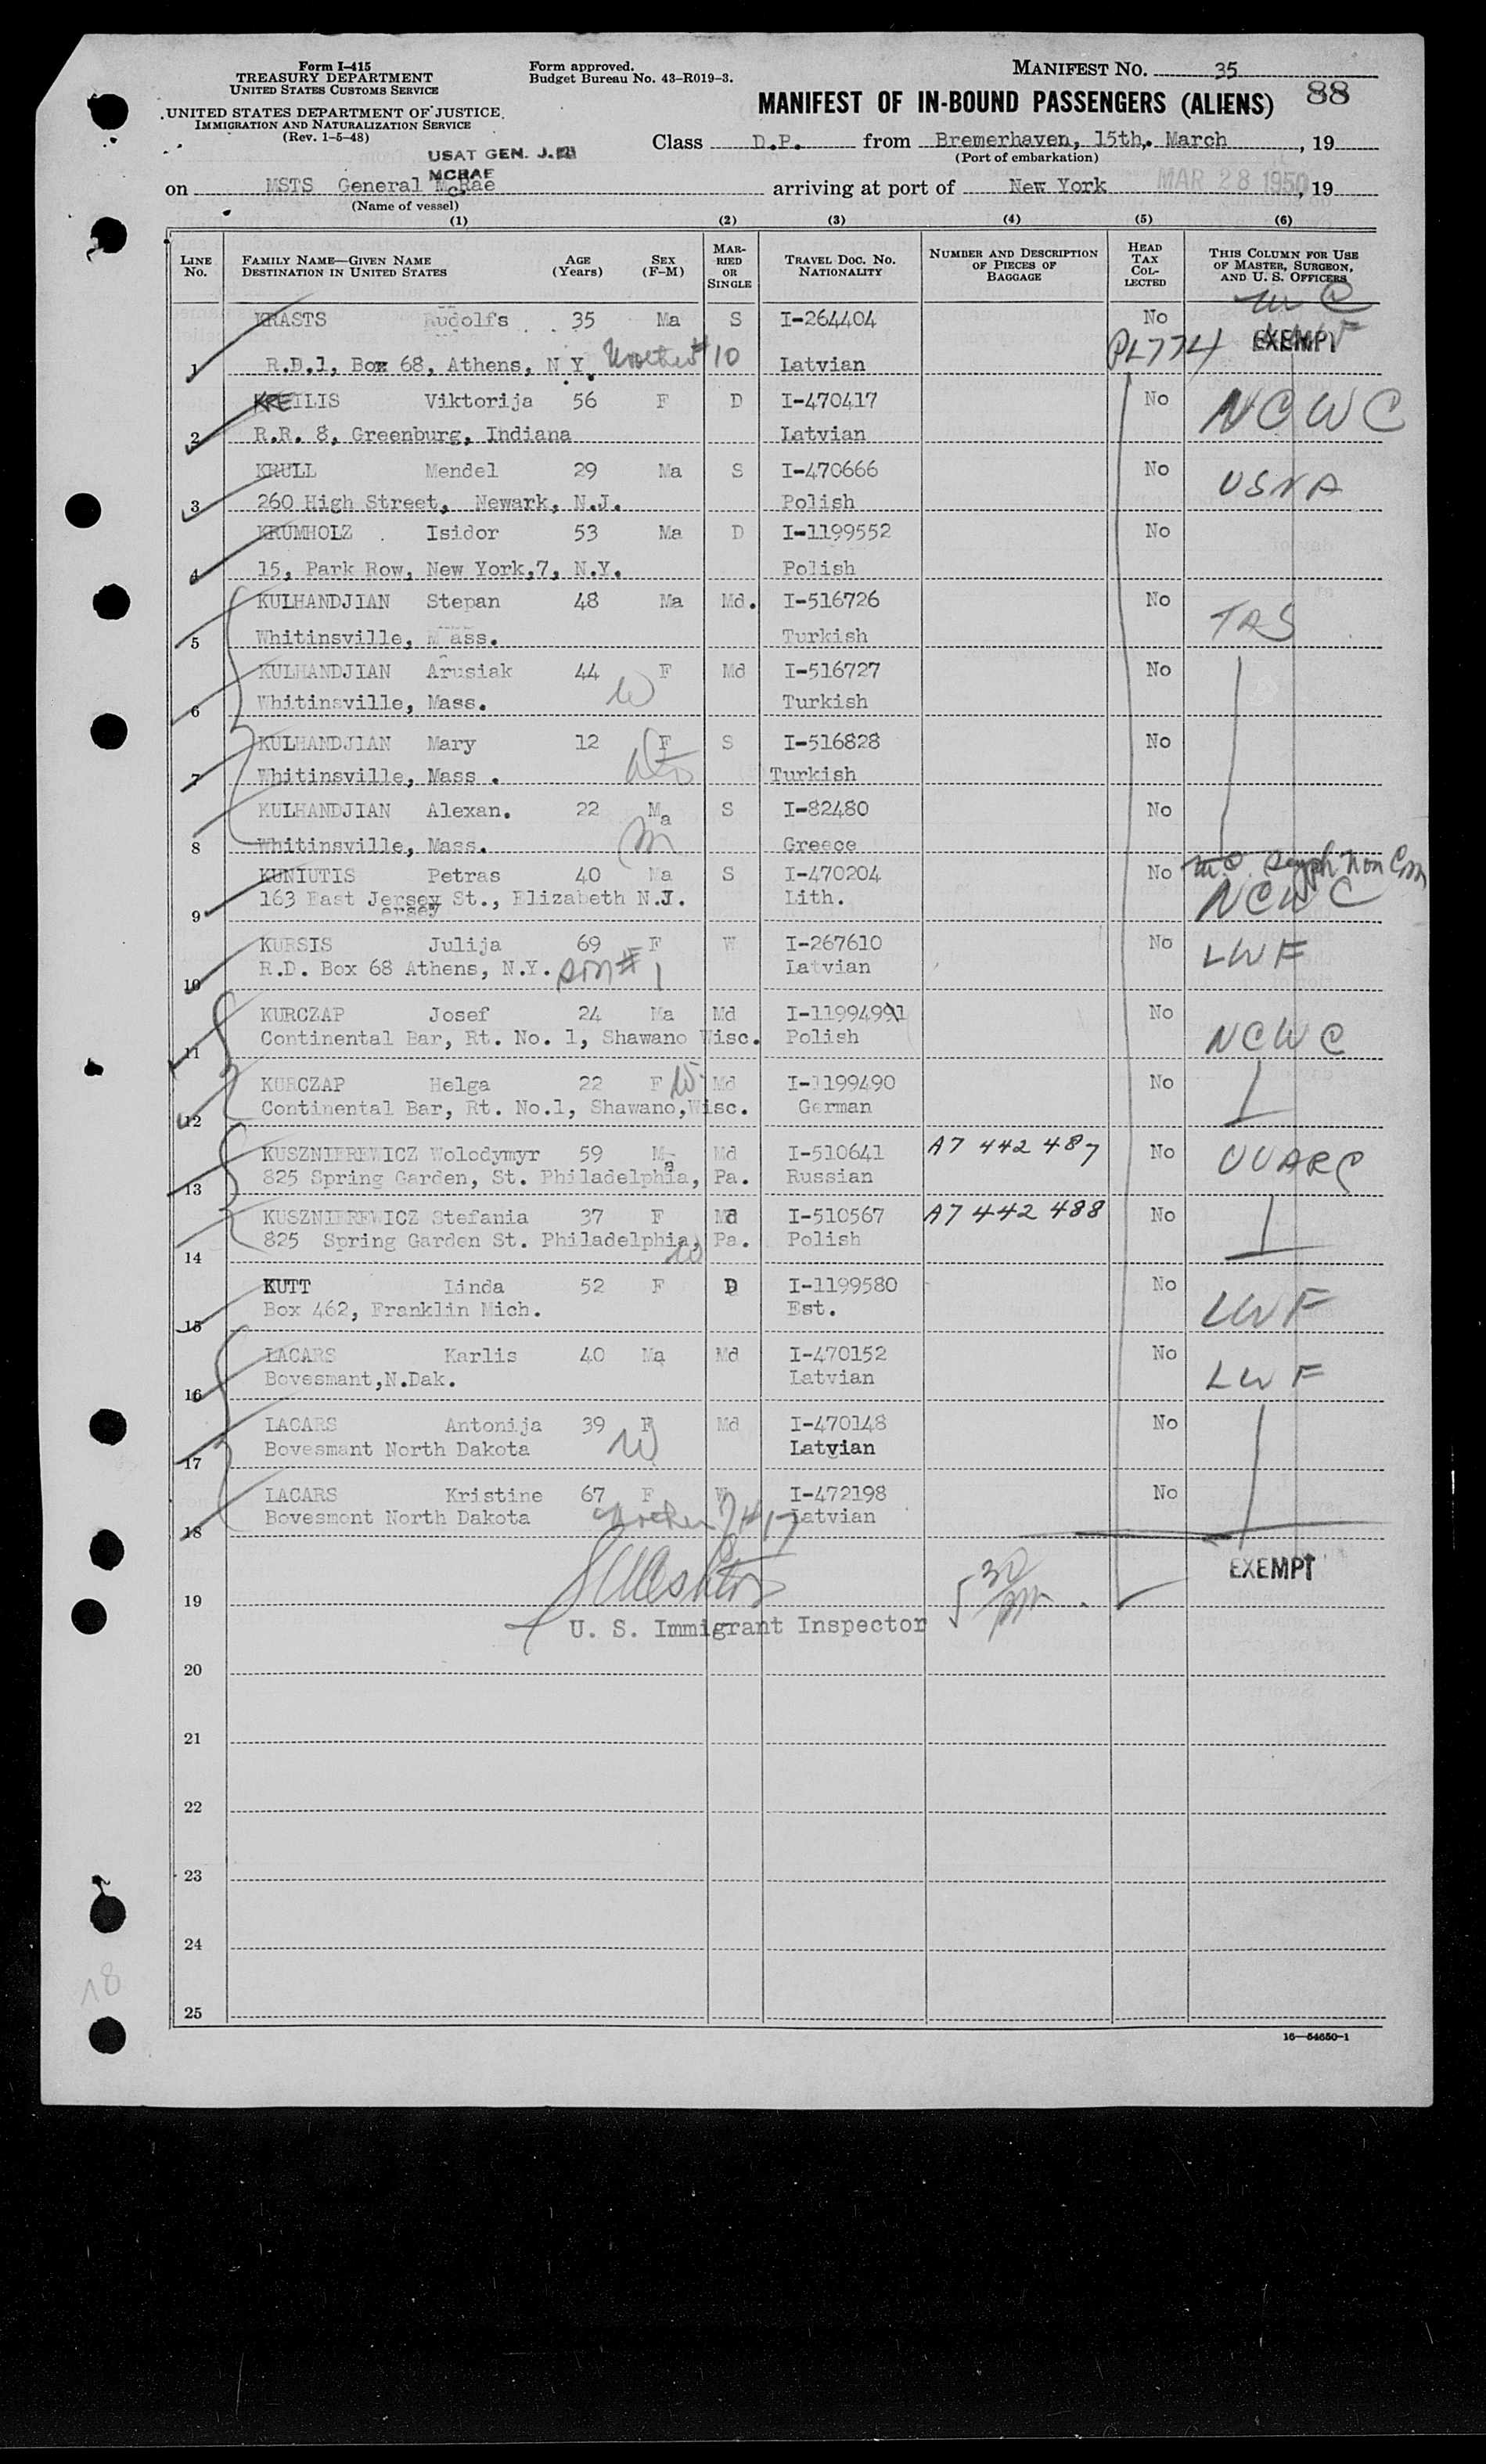 Form I-415
TREASURY DEPARTMENT
UNITED STATES CUSTOMS SERVICE
UNITED STATES DEPARTMENT OF JUSTICE
IMMIGRATION AND NATURALIZATION SERVICE
(Rev. 1-5-48)
Form approved.
Budget Bureau No. 43-R019-3.
MANIFEST NO. 35
MANIFEST OF IN-BOUND PASSENGERS (ALIENS) 88
Class D.P. from Bremerhaven, 15th. March, 19
(Port of embarkation)
USAT GEN. J.
MCRAE
on MSTS General McRae arriving at port of New York MAR 28 1950, 19
(Name of vessel)
(1) (2) (3) (4) (5) (6)
LINE No. FAMILY NAME—GIVEN NAME DESTINATION IN UNITED STATES AGE (Years) SEX (F-M) MARRIED OR SINGLE TRAVEL DOC. NO. NATIONALITY NUMBER AND DESCRIPTION OF PIECES OF BAGGAGE HEAD TAX COLLECTED THIS COLUMN FOR USE OF MASTER, SURGEON, AND U. S. OFFICERS
KRASTS Rudolfs 35 Ma S I-264404 No
PL774 EXEMPT
1 R.D.1, Box 68, Athens, N Y. #10 Latvian
KREILIS Viktorija 56 F D I-470417 No NCWC
2 R.R. 8, Greenburg, Indiana Latvian
KRULL Mendel 29 Ma S I-470666 No USNA
3 260 High Street, Newark, N.J. Polish
KRUMHOLZ Isidor 53 Ma D I-1199552 No
4 15, Park Row, New York,7, N.Y. Polish
KULHANDJIAN Stepan 48 Ma Md. I-516726 No TAS
5 Whitinsville, Mass. Turkish
KULHANDJIAN Arusiak 44 F Md I-516727 No
6 Whitinsville, Mass. W Turkish
KULHANDJIAN Mary 12 F S I-516828 No
7 Whitinsville, Mass . Turkish
KULHANDJIAN Alexan. 22 Ma S I-82480 No
8 Whitinsville, Mass. Greece
KUNIUTIS Petras 40 Ma S I-470204 No
9 163 East Jersey St., Elizabeth N.J. Lith. NCWC
ersey
KURSIS Julija 69 F W I-267610 No LWF
10 R.D. Box 68 Athens, N.Y. son #1 Latvian
KURCZAP Josef 24 Ma Md I-1199491 No NCWC
11 Continental Bar, Rt. No. 1, Shawano Wisc. Polish
KURCZAP Helga 22 F W Md I-1199490 No
12 Continental Bar, Rt. No.1, Shawano,Wisc. German
KUSZNIEREWICZ Wolodymyr 59 Ma Md I-510641 A7 442 487 No UUARC
13 825 Spring Garden, St. Philadelphia, Pa. Russian
KUSZNIEREWICZ Stefania 37 F Md I-510567 A7 442 488 No
14 825 Spring Garden St. Philadelphia, Pa. W Polish
KUTT Linda 52 F D I-1199580 No LWF
15 Box 462, Franklin Mich. Est.
LACARS Karlis 40 Ma Md I-470152 No LWF
16 Bovesmant,N.Dak. Latvian
LACARS Antonija 39 F Md I-470148 No
17 Bovesmant North Dakota W Latvian
LACARS Kristine 67 F W I-472198 No
18 Bovesmont North Dakota #17 Latvian
EXEMPT
19
U. S. Immigrant Inspector
20
21
22
23
24
25
18
16—54650-1